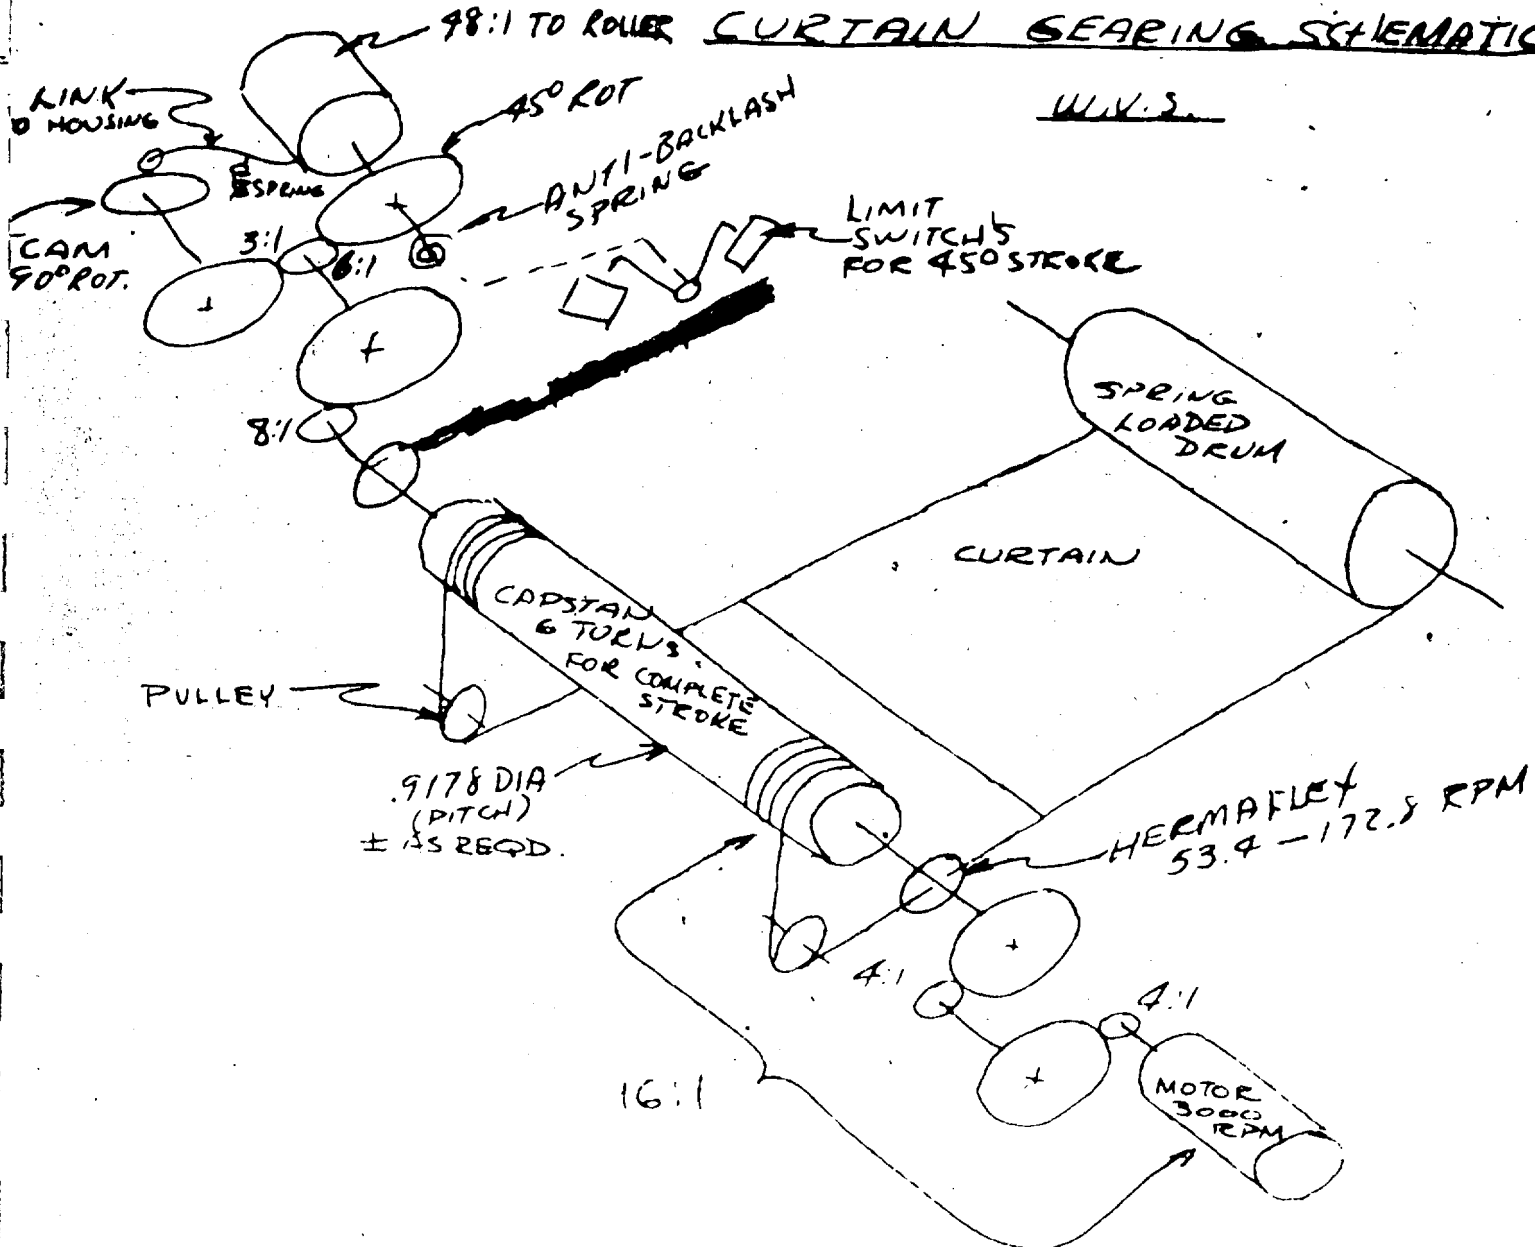 48:1 TO ROLLER
CURTAIN GEARING SCHEMATIC
W.V.S.
LINK
O HOUSING
45° ROT
ANTI-BACKLASH
SPRING
SPRING
LIMIT
SWITCH'S
FOR 45° STROKE
3:1
6:1
CAM
90° ROT.
8:1
SPRING
LOADED
DRUM
CURTAIN
CAPSTAN
6 TURNS
FOR COMPLETE
STROKE
PULLEY
.9178 DIA
(PITCH)
± AS REQD.
HERMAFLEX
53.4 - 172.8 RPM
4:1
4:1
16:1
MOTOR
3000
RPM